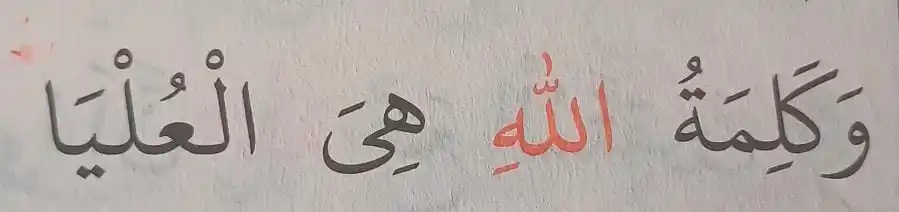 وَكَلِمَةُ اللّٰهِ هِىَ الْعُلْيَا